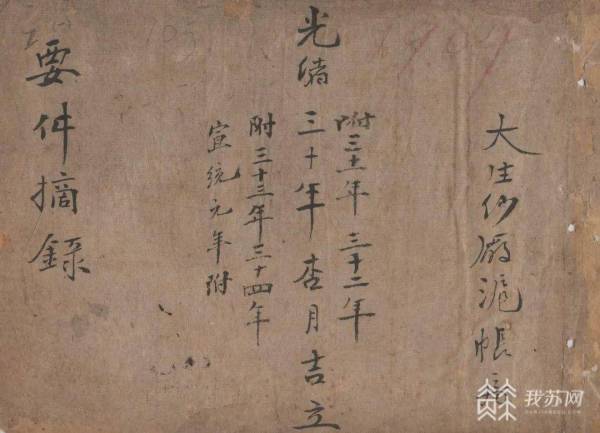 大生纱厰滬帳
附三十一年 三十二年
光緒三十年杏月吉立
附三十三年三十四年
宣统元年附
要件摘録
我苏网